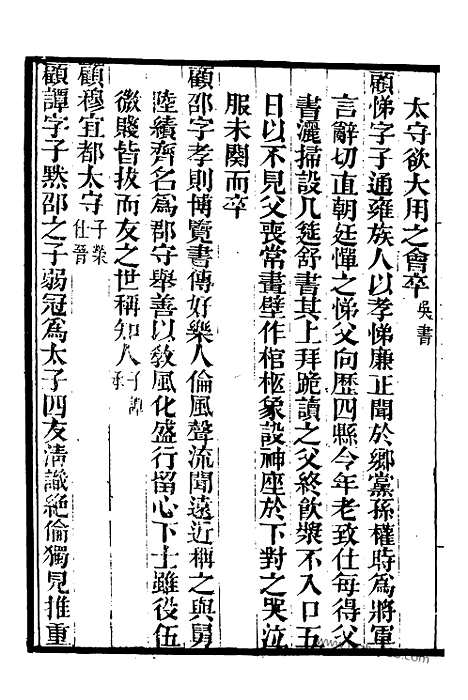 太守欲大用之會卒吳書
顧悌字子通雍族人以孝悌廉正聞於鄉黨孫權時爲將軍
言辭切直朝廷憚之悌父向歷四縣令年老致仕每得父
書灑掃設几筵舒書其上拜跪讀之父終飲漿不入口五
日以不見父喪常畫壁作棺柩象設神座於下對之哭泣
服未闋而卒
顧邵字孝則博覽書傳好樂人倫風聲流聞遠近稱之與舅
陸績齊名爲郡守舉善以敎風化盛行留心下士雖役伍
微賤皆拔而友之世稱知人子譚承
顧穆宜都太守子榮仕晉
顧譚字子黙邵之子弱冠爲太子四友淸識絶倫獨見推重